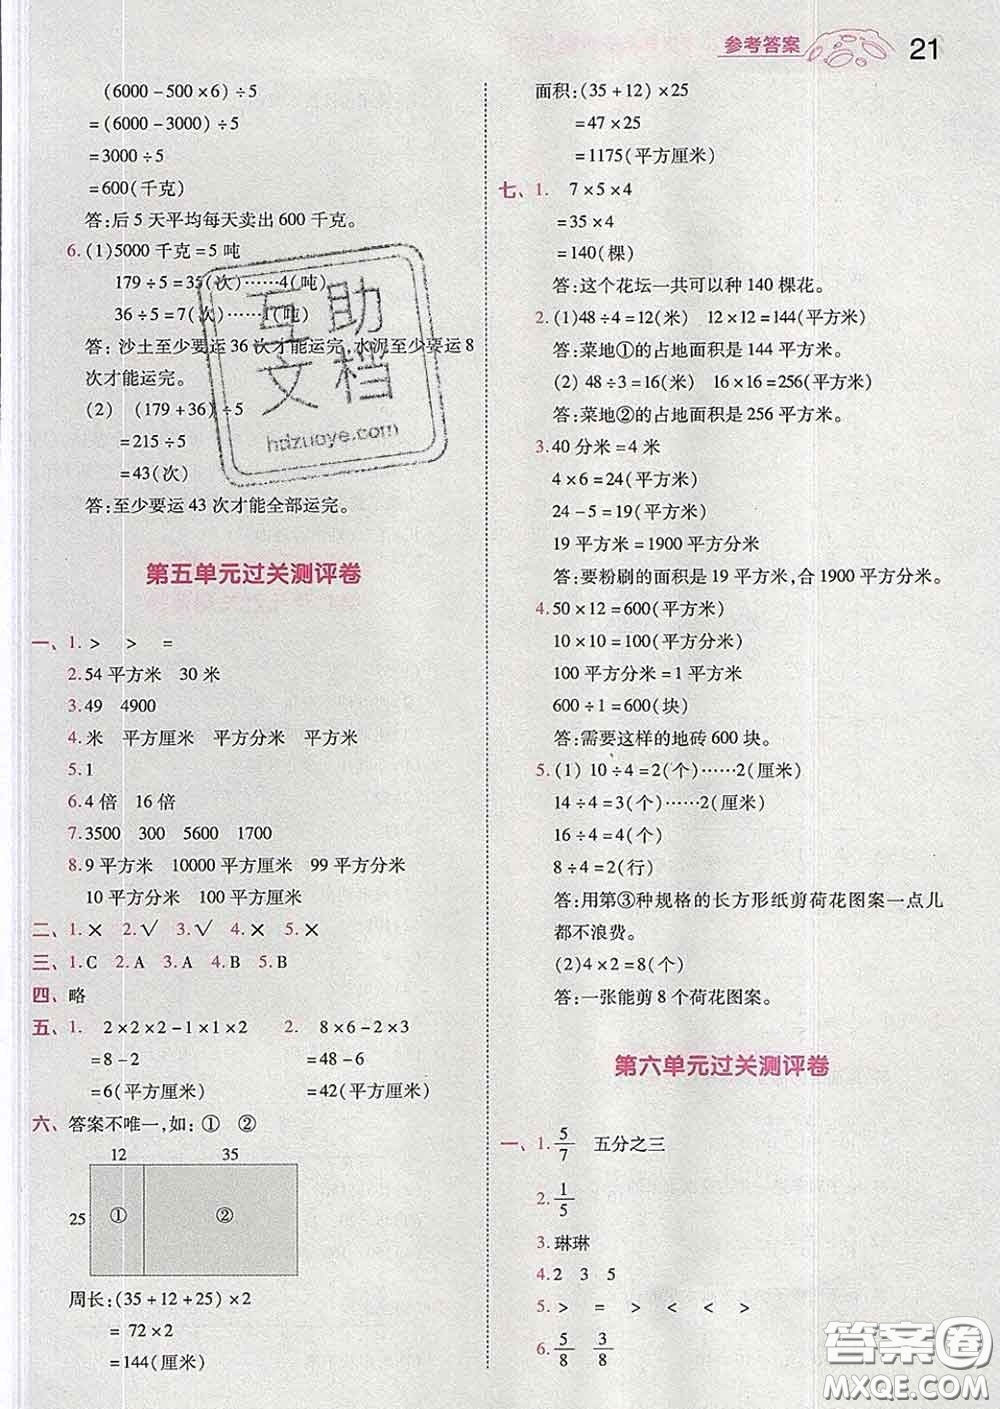 参考答案 21
(6000-500×6)÷5
=(6000-3000)÷5
=3000÷5
=600(千克)
答:后5天平均每天卖出600千克。
6. (1)5000千克=5吨
179÷5=35(次)……4(吨)
36÷5=7(次)……1(吨)
答:沙土至少要运36次才能运完,水泥至少要运8
次才能运完。
(2) (179+36)÷5
=215÷5
=43(次)
答:至少要运43次才能全部运完。
互助
文档
hdzuoye.com
第五单元过关测评卷
一、1. > > =
2.54平方米 30米
3.49 4900
4.米 平方厘米 平方分米 平方米
5.1
6.4倍 16倍
7.3500 300 5600 1700
8.9平方米 10000平方厘米 99平方米
10平方分米 100平方厘米
二、1.× 2.√ 3.√ 4.× 5.×
三、1.C 2.A 3.A 4.B 5.B
四、略
五、1. 2×2×2-1×1×2 2. 8×6-2×3
=8-2 =48-6
=6(平方厘米) =42(平方厘米)
六、答案不唯一,如:① ②
12 35
25 ① ②
周长:(35+12+25)×2
= 72×2
=144(厘米)
面积:(35+12)×25
=47×25
=1175(平方厘米)
七、1. 7×5×4
=35×4
=140(棵)
答:这个花坛一共可以种140棵花。
2. (1)48÷4=12(米) 12×12=144(平方米)
答:菜地①的占地面积是144平方米。
(2) 48÷3=16(米) 16×16=256(平方米)
答:菜地②的占地面积是256平方米。
3.40分米=4米
4×6=24(平方米)
24-5=19(平方米)
19平方米=1900平方分米
答:要粉刷的面积是19平方米,合1900平方分米。
4.50×12=600(平方米)
10×10=100(平方分米)
100平方分米=1平方米
600÷1=600(块)
答:需要这样的地砖600块。
5. (1) 10÷4=2(个)……2(厘米)
14÷4=3(个)……2(厘米)
16÷4=4(个)
8÷4=2(行)
答:用第③种规格的长方形纸剪荷花图案一点儿
都不浪费。
(2)4×2=8(个)
答:一张能剪8个荷花图案。
第六单元过关测评卷
一、1. 5/7 五分之三
2. 1/5
3.琳琳
4.2 3 5
5. > = > < < >
6. 5/8 3/8
答案圈
MXQE.COM